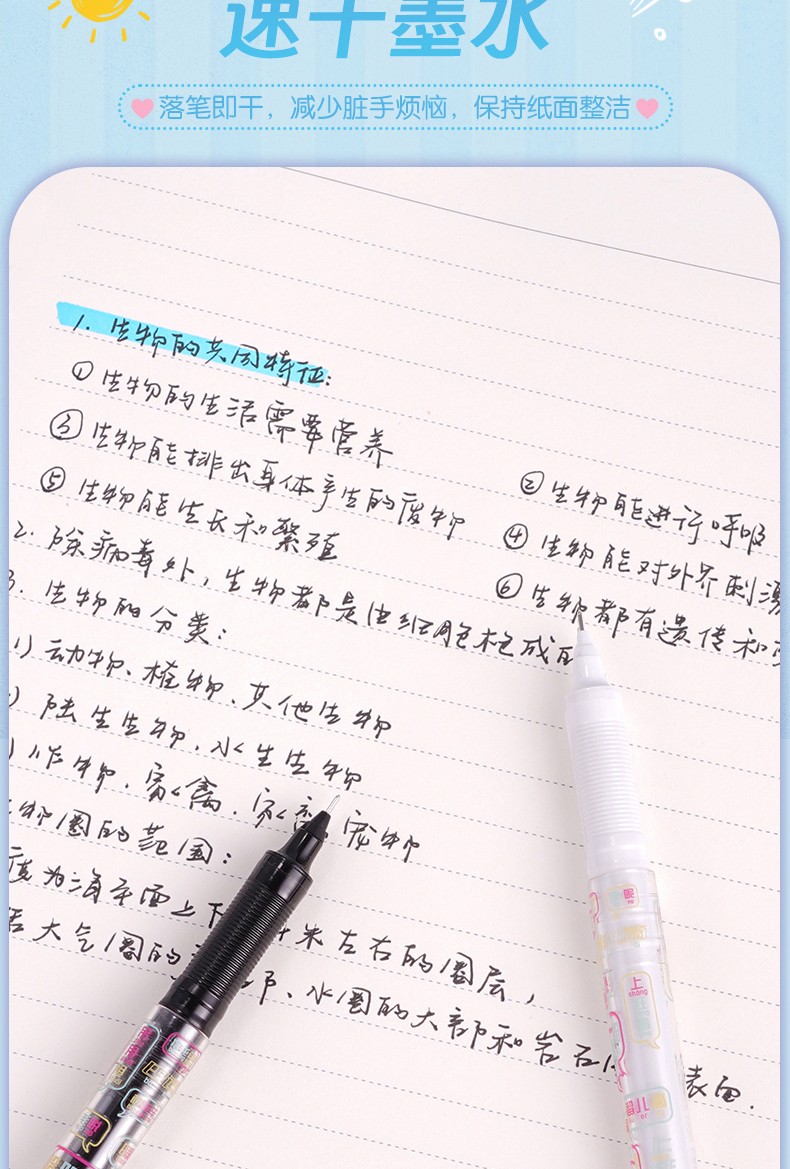 速干墨水
落笔即干，减少脏手烦恼，保持纸面整洁
1. 生物的共同特征：
① 生物的生活需要营养
② 生物能进行呼吸
③ 生物能排出身体产生的废物
④ 生物能对外界刺激
⑤ 生物能生长和繁殖
⑥ 生物都有遗传和
2. 除病毒外，生物都是由细胞构成的
3. 生物的分类：
1) 动物、植物、其他生物
) 陆生生物、水生生物
) 作物、家禽、家畜、宠物
物圈的范围：
度为海平面上下 米左右的圈层，
括大气圈的 部、水圈的大部和岩石 表面.
上
shàng